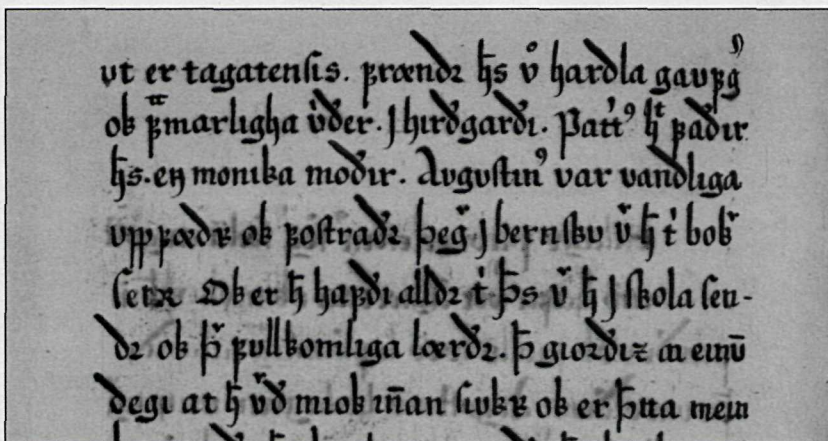 vt er tagatenſis. ꝼrændꝛ h̅s vͦ hardla gauꝼg᷎
ok ꝼ̅marligha v̍ðer. J hırðgarðı. Patt̍ꝰ h̅t ꝼaðır
h̅s. en monıka moðır. Auguſtınꝰ var vandlıga
vpp ꝼædꝛ ok ꝼoſtraðꝛ þeg̅ J bernſku v̅ h̅ t̍ bok̅
ſetꝛ Ok er h̅ haꝼðı alldꝛ t̍ þ̅s v̅ h̅ J ſkola ſen-
dꝛ ok þ̅ ꝼullkomlıga lærðꝛ. þ̅ gıoꝛðız a eınū
degı at h̅ v̅ð mıok ın̅an ſıukꝛ ok er þ̅tta meın